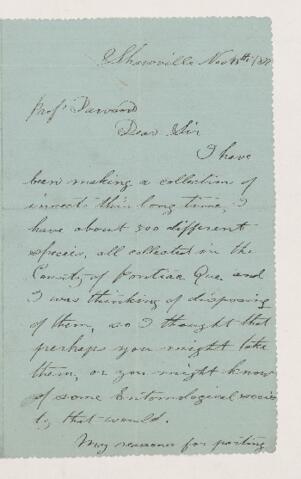 Shawville Nov
Prof.
Dear Sir
I have
been making a collection of
insects this long time, I
have about 500 different
species, all collected in the
County of Pontiac Que. and
I was thinking of disposing
of them, so I thought that
perhaps you might take
them, or you might know
of some Entomological socie
ty that would.
My reasons for parting